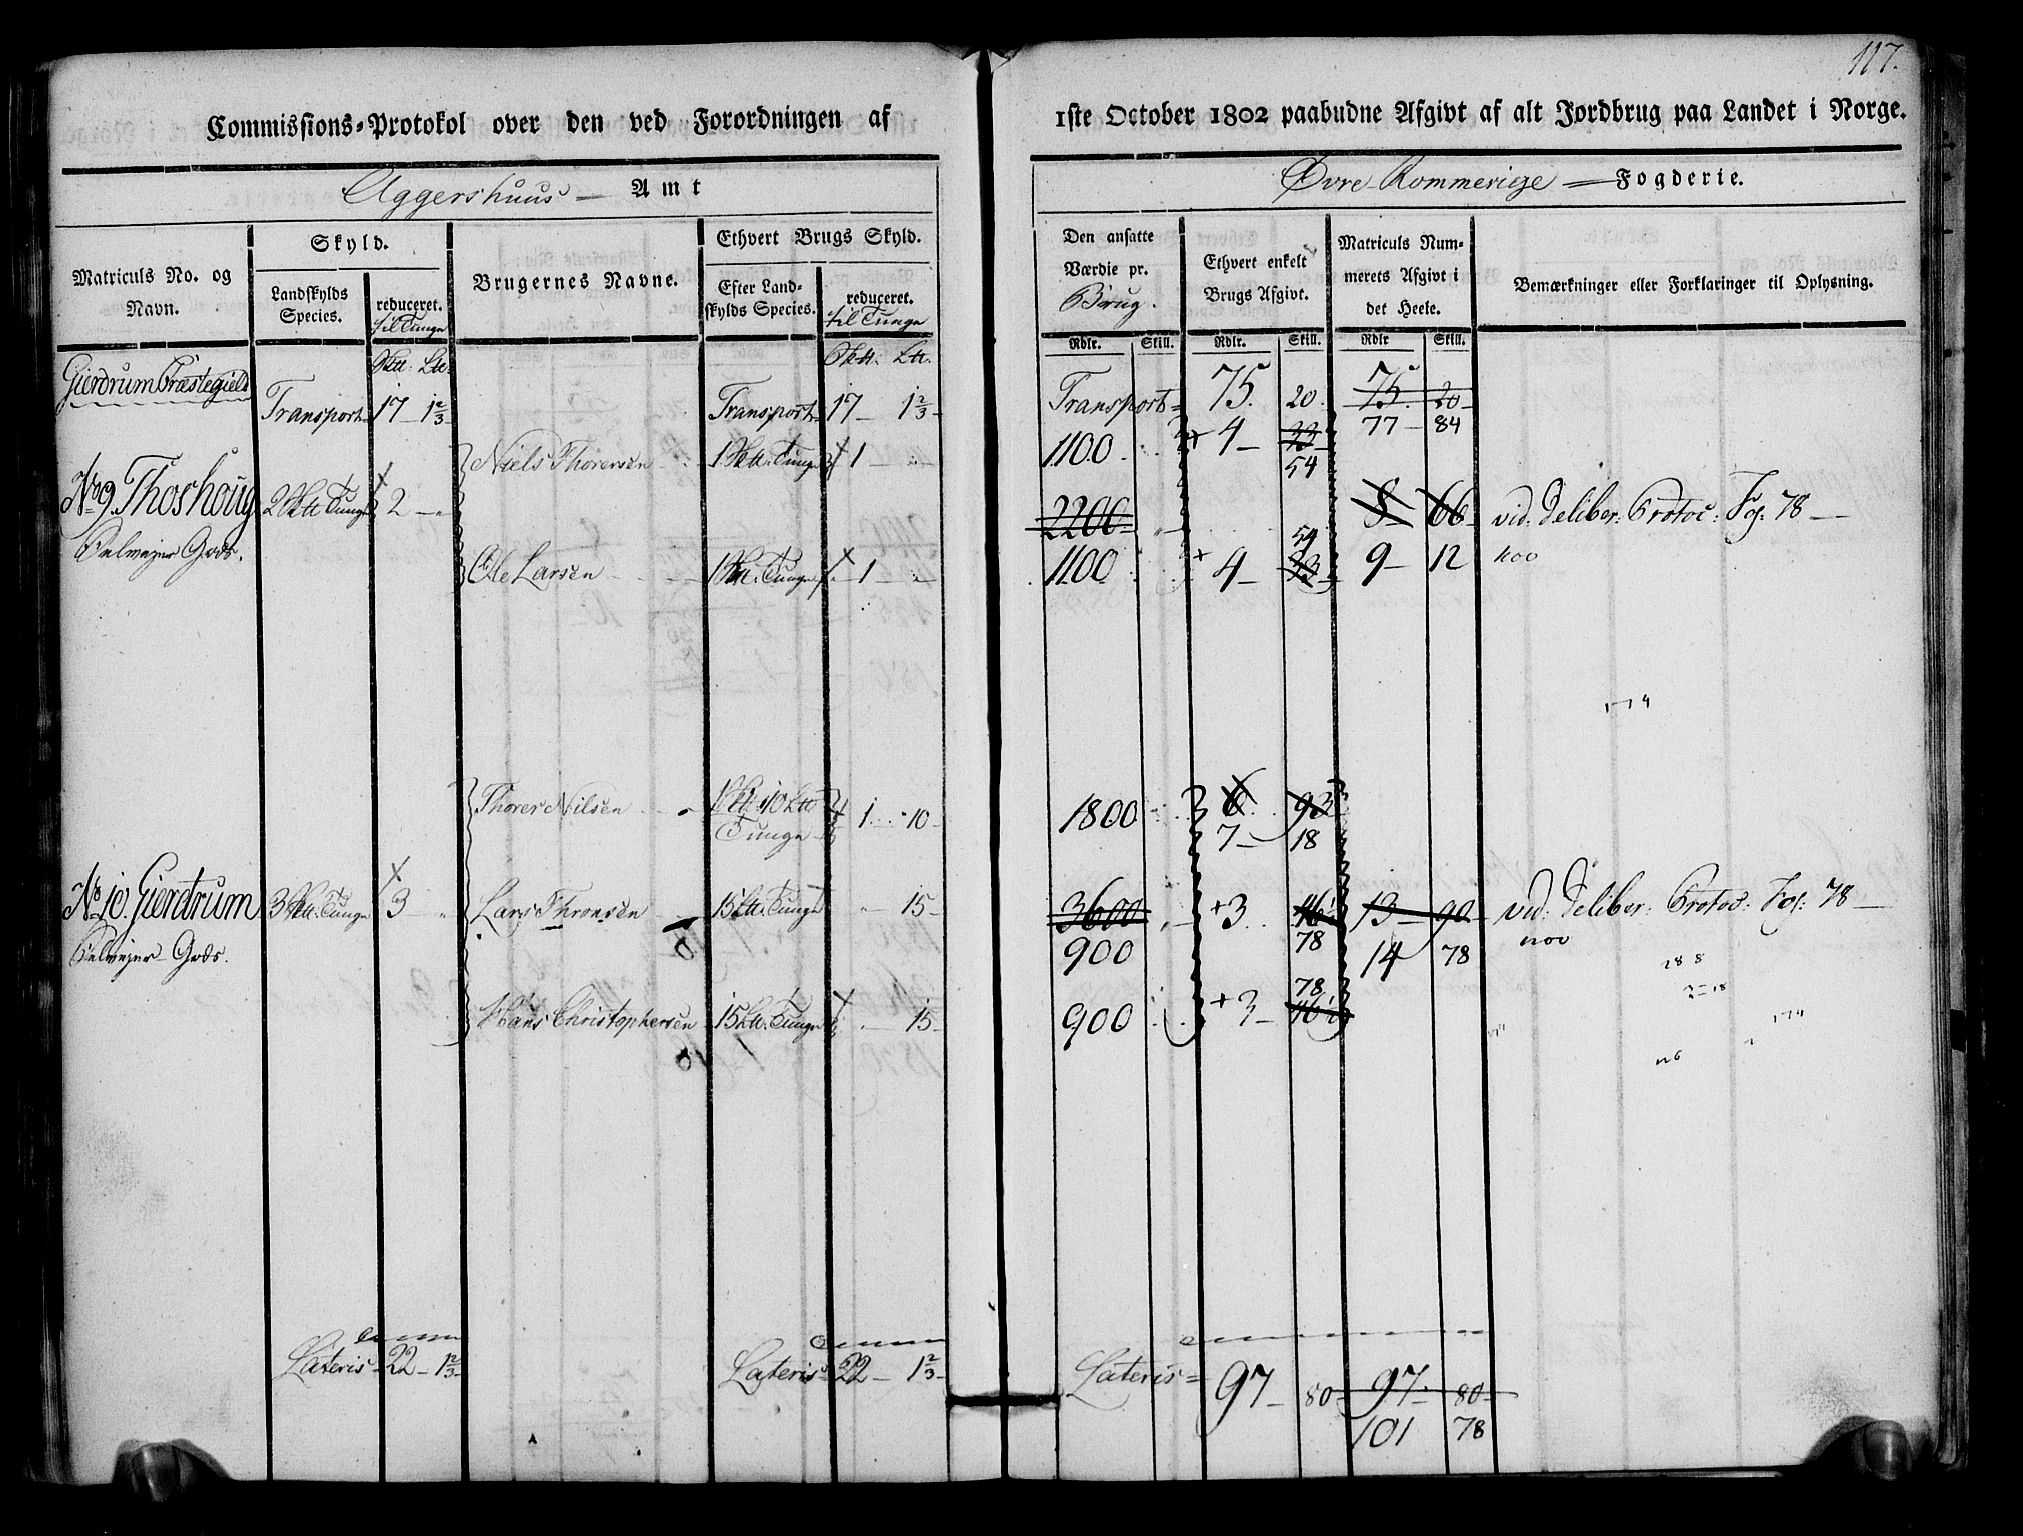 117.
Commissions-Protokol over den ved Forordningen af 1ste October 1802 paabudne Afgivt af alt Jordbrug paa Landet i Norge.
Aggershuus Amt
Øvre Rommerige Fogderie.
Matriculs No. og Navn.
Skyld.
Landskylds Species.
reduceret. til Tunge
Brugernes Navne.
Ethvert Brugs Skyld.
Efter Landskylds Species.
reduceret. til Tunge
Den ansatte Værdie pr. Brug.
Ethvert enkelt Brugs Afgivt.
Matriculs Nummerets Afgivt i det Heele.
Bemærkninger eller Forklaringer til Oplysning.
Rdlr. Skill. Rdlr. Skill. Rdlr Skill.
Gierdrum Præstegield
Transport 17 - 1 2/3 Transport 17 - 1 2/3 Transport 75. 20. 75. 20
77 - 84
Niels Thoresen 1 Tunge 1 1100 4 - 33
54
No 9. Thoshoug 2 Tunge 2 2200 8 - 66 vid: Deliber: Protoc: Fol: 78
54
Gods. Ole Larsen 1 Tunge 1 1100 4 - 33 9 - 12
Thorer Nilsen 1 10 Tunge 1 10 1800 6 93
7 - 18
No 10. Gierdrum 3 Tunge 3 Lars Thronsen 15 Tunge 15 3600 3 46 13 - 90 vid: Deliber: Protoc: Fol: 78
Gods. 900 78 14 78
78
Hans Christophersen 15 Tunge 15 900 3 46
Lateris 22 - 1 2/3 Lateris 22 - 1 2/3 Lateris 97 - 80 97 - 80
101 78